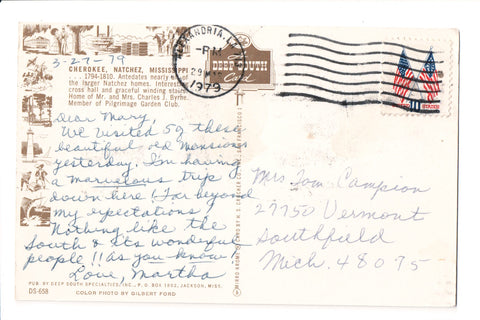 3-27-79
CHEROKEE, NATCHEZ, MISSISSIPPI
... 1794-1810. Antedates nearly
the larger Natchez homes.
cross hall and graceful winding
Home of Mr. and Mrs. Charles J. Byrne.
Member of Pilgrimage Garden Club.
Dear Mary,
We visited 5 of these
beautiful old mansions
yesterday. I'm having
a marvelous trip
down here! Far beyond
my expectations.
Nothing like the
South & its wonderful
people!! as you know
Love, Martha
PUB. BY DEEP SOUTH SPECIALTIES, INC., P.O. BOX 1852, JACKSON, MISS.
DS-658
COLOR PHOTO BY GILBERT FORD
ALEXANDRIA, LA
PM
29 MAR
1979
DEEP SOUTH
Card
Mrs Tom Campion
27750 Vermont
Southfield
Mich. 48075